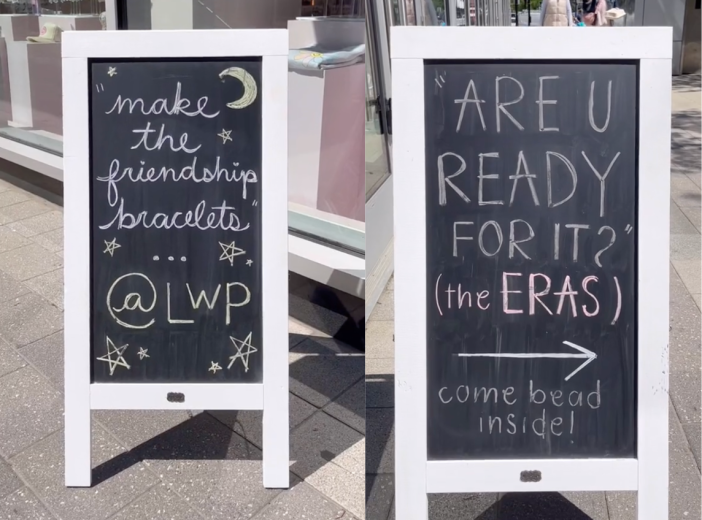 "make
the
friendship
bracelets"
...
@LWP
"ARE U
READY
FOR IT?"
(the ERAS)
come bead
inside!